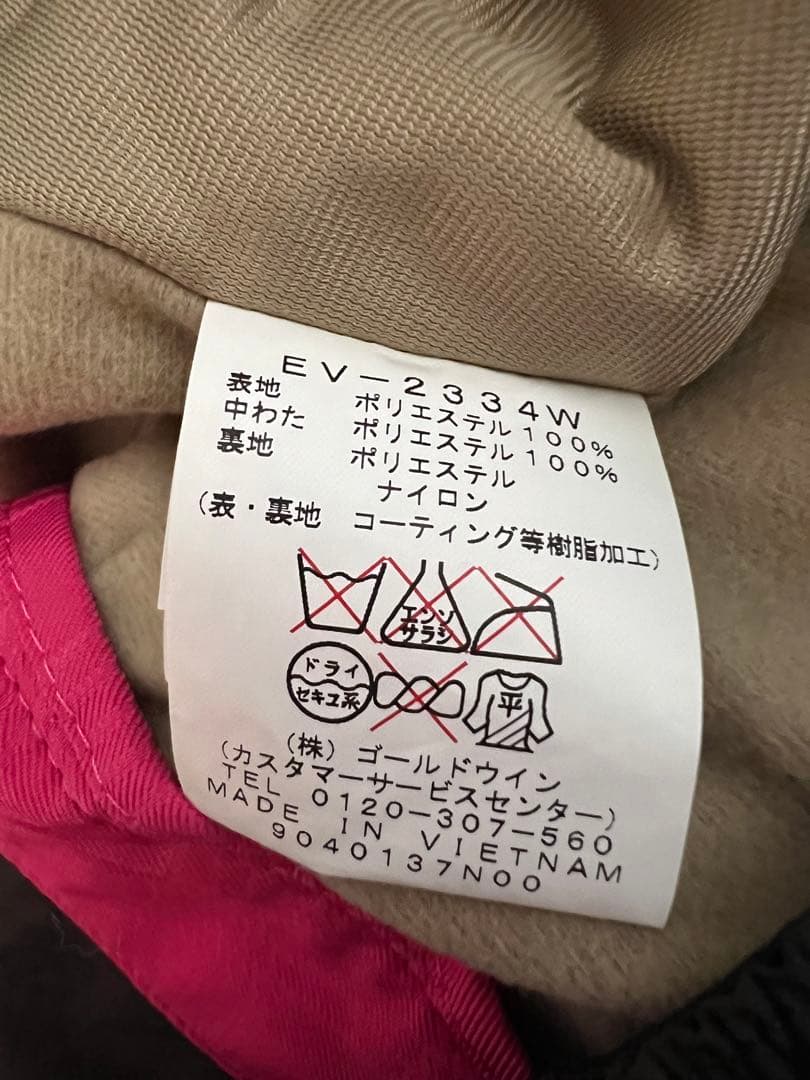 EV-2334W
表地 ポリエステル100%
中わた ポリエステル100%
裏地 ポリエステル
ナイロン
(表・裏地 コーティング等樹脂加工)
エンソ
サラシ
ドライ
セキユ系
平
(株) ゴールドウイン
(カスタマーサービスセンター)
TEL 0120-307-560
MADE IN VIETNAM
9040137N00